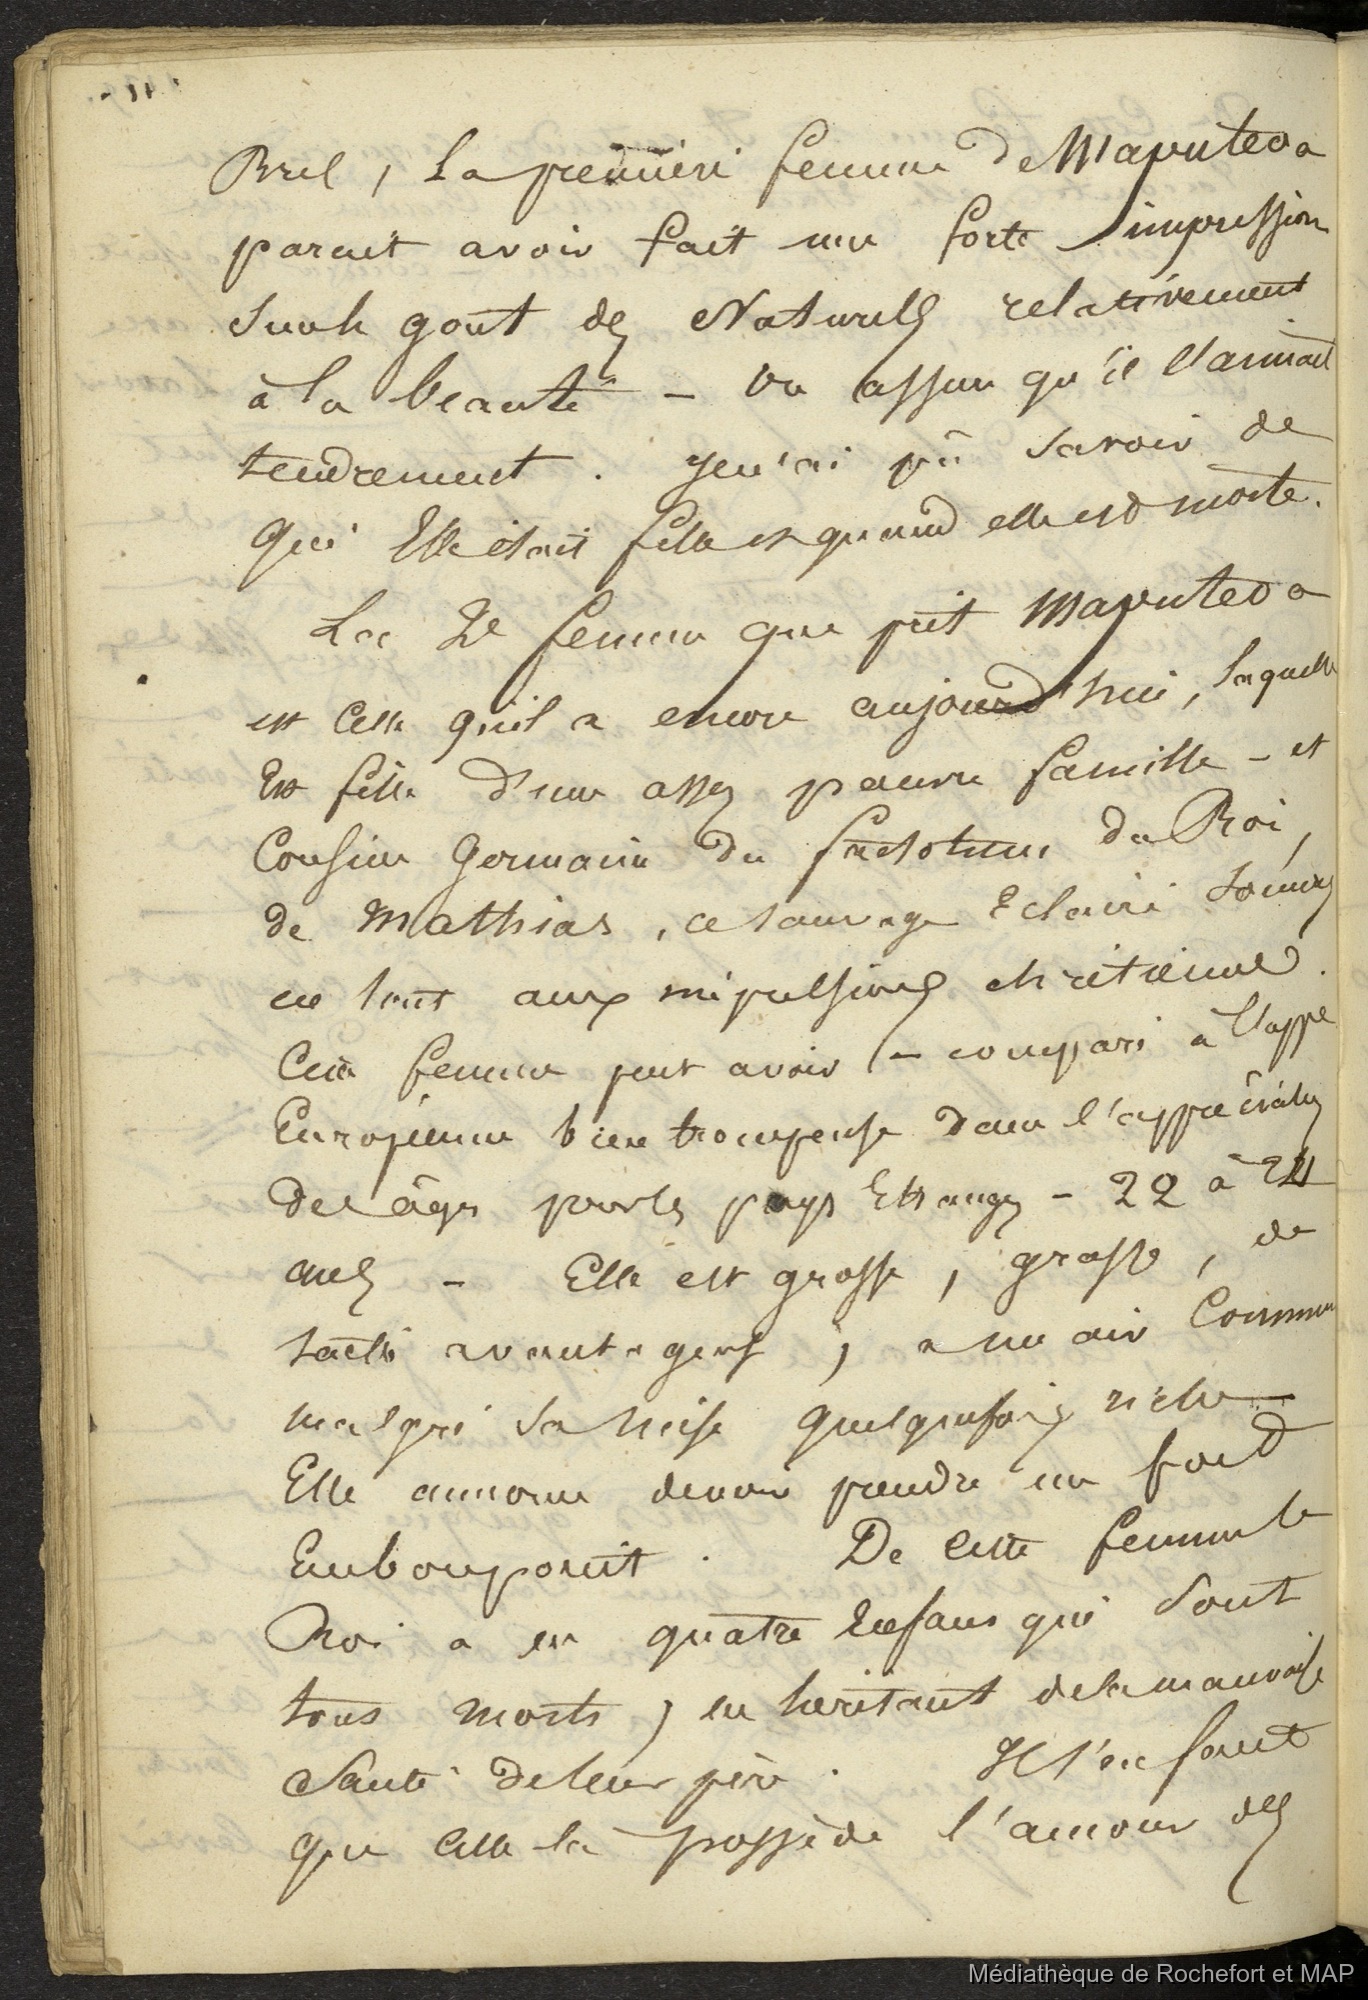 Bref, La première femme de Maputeoa
parait avoir fait une forte impression
sur le gout des Naturels relativement
à la beauté - on assure qu'il l'aimait
tendrement. Je n'ai pû savoir de
qui Elle était fille et quand elle est morte.
La 2e femme que prit Maputeoa
est Celle qu'il a encore aujourd'hui, laquelle
Est fille d'une assez pauvre famille - et
Cousine Germaine du factotum du Roi,
de Mathias, ce sauvage Eclairé soumis
en tout aux impulsions chrétiennes.
Cette femme peut avoir - comparé à l'appe
Européenne bien trompeuse dans l'appréciation
des âges pour les pays Etrangers - 22 à 24
ans - Elle est grosse, grasse, de
taille avantageuse, a un air Commun
malgré sa mise quelquefois riche
Elle annonce devoir prendre un fort
Embonpoint. De cette femme le
Roi a eu quatre Enfans qui sont
tous morts, en héritant de la mauvaise
Santé de leur père. Il s'en faut
que celle-là possède l'amour des
Médiathèque de Rochefort et MAP